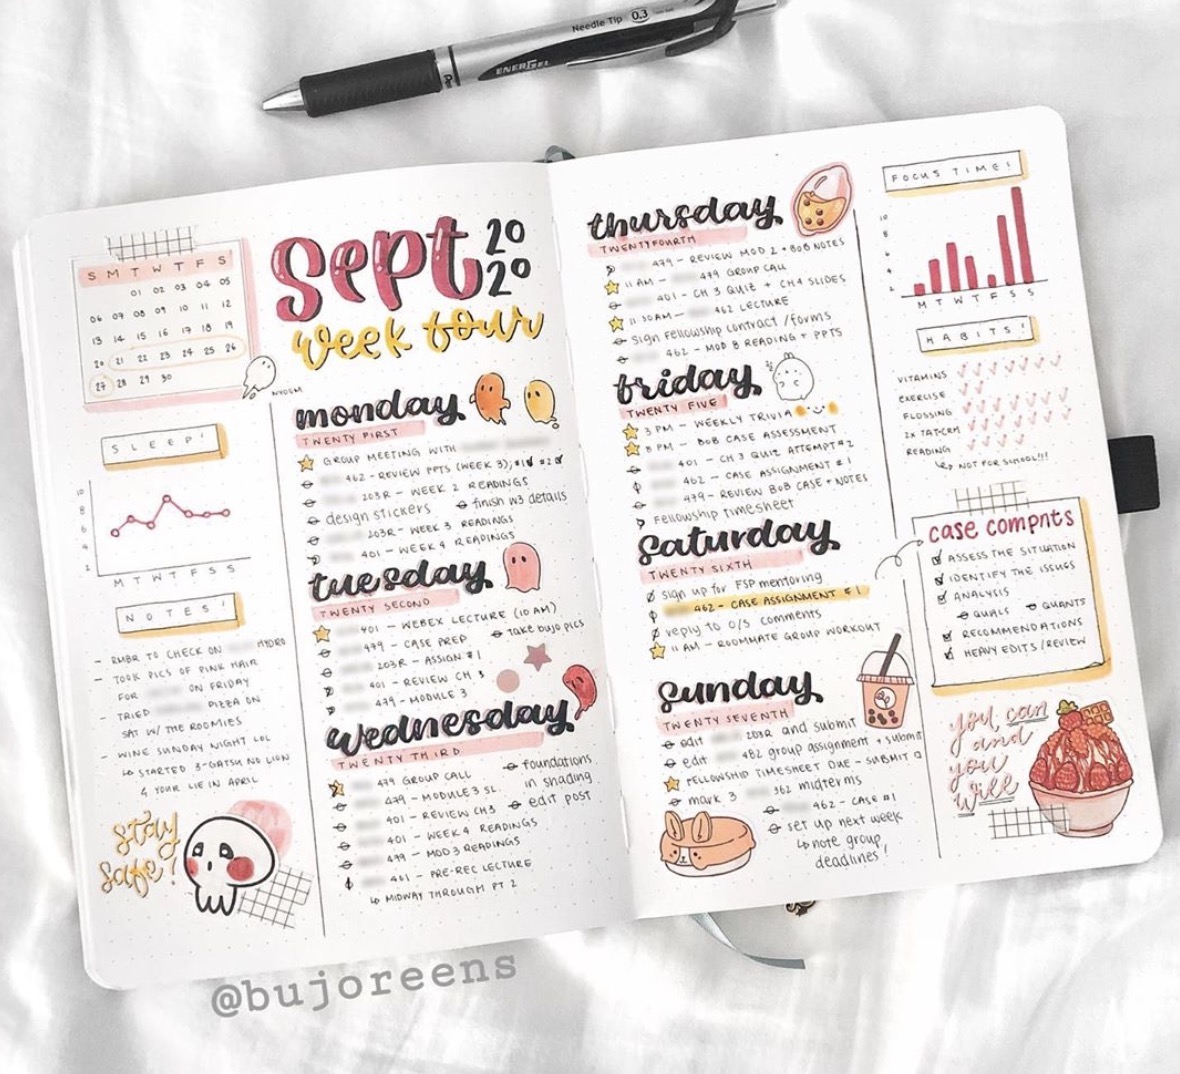 Needle Tip 0.3
ENERGEL
S M T W T F S
01 02 03 04 05
06 07 08 09 10 11 12
13 14 15 16 17 18 19
20 21 22 23 24 25 26
27 28 29 30
Sept 2020
week four
SLEEP!
10
8
6
4
2
M T W T F S S
NOTES!
- RMBR TO CHECK ON HYDRO
- TOOK PICS OF PINK HAIR
FOR ON FRIDAY
- TRIED PIZZA ON
SAT W/ THE ROOMIES
- WINE SUNDAY NIGHT LOL
↳ STARTED 3-GATSU NO LION
& YOUR LIE IN APRIL
stay
safe!
monday
TWENTY FIRST
GROUP MEETING WITH
462 - REVIEW PPTS (WEEK 3), #1 #2
203R - WEEK 2 READINGS
design stickers finish w3 details
203R - WEEK 3 READINGS
401 - WEEK 4 READINGS
tuesday
TWENTY SECOND
401 - WEBEX LECTURE (10 AM)
479 - CASE PREP take bujo pics
203R - ASSIGN #1
401 - REVIEW CH 3
479 - MODULE 3
wednesday
TWENTY THIRD
479 GROUP CALL foundations
479 - MODULE 3 SL. in shading
401 - REVIEW CH3 edit post
401 - WEEK 4 READINGS
479 - MOD 3 READINGS
461 - PRE-REC LECTURE
↳ MIDWAY THROUGH PT 2
thursday
TWENTYFOURTH
479 - REVIEW MOD 2 + BOB NOTES
11 AM - 479 GROUP CALL
401 - CH 3 QUIZ + CH4 SLIDES
11:30AM - 462 LECTURE
sign Fellowship contract/forms
462 - MOD 8 READING + PPTS
friday
TWENTY FIVE
3 PM - WEEKLY TRIVIA
8 PM - BOB CASE ASSESSMENT
401 - CH 3 QUIZ ATTEMPT #2
462 - CASE ASSIGNMENT #1
479 - REVIEW BOB CASE + NOTES
Fellowship timesheet
saturday
TWENTY SIXTH
sign up for FSP mentoring
462 - CASE ASSIGNMENT #1
reply to O/S comments
11 AM - ROOMMATE GROUP WORKOUT
sunday
TWENTY SEVENTH
edit 203R and submit
edit 482 group assignment + submit
FELLOWSHIP TIMESHEET ONE - SUBMIT
mark 3 362 midterms
462 - CASE #1
set up next week
↳ note group
deadlines!
FOCUS TIME!
10
8
6
4
2
M T W T F S S
HABITS!
VITAMINS
EXERCISE
FLOSSING
2x TAT-CRM
READING
↳ NOT FOR SCHOOL!!!
case compnts
ASSESS THE SITUATION
IDENTIFY THE ISSUES
ANALYSIS
QUALS QUANTS
RECOMMENDATIONS
HEAVY EDITS/REVIEW
you can
and
you
will
@bujoreens